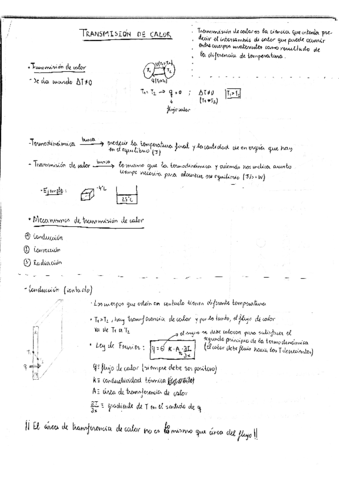 TRANSMISIÓN DE CALOR
- Transmisión de calor es la ciencia que intenta predecir el intercambio de calor que puede ocurrir entre cuerpos materiales como resultado de la diferencia de temperatura.
- Transmisión de calor
- Se da cuando ΔT≠0
T₁ T₂
T₁ = T₂ → q = 0 ; ΔT≠0 T₁ > T₂
(T₁≠T₂)
flujo calor
- Termodinámica busca predecir la temperatura final y la cantidad de energía que hay
en el equilibrio (J)
- Transmisión de calor busca lo mismo que la termodinámica y además nos indica cuanto
tiempo necesita para alcanzar ese equilibrio (J/s=W)
- Ejemplo:
• Mecanismos de transmisión de calor
① Conducción
② Convección
③ Radiación
- Conducción (contacto)
- Los cuerpos que están en contacto tienen diferente temperatura
- T₁ > T₂, hay transferencia de calor y por lo tanto, el flujo de calor
va de T₁ a T₂
el signo se debe colocar para satisfacer el
segundo principio de la termodinámica
(el calor debe fluir hacia las T decrecientes)
- Ley de Fourier: q = - K · A · ∂T/∂x
q: flujo de calor (siempre debe ser positivo)
K = conductividad térmica
A = área de transferencia de calor
∂T/∂x = gradiente de T en el sentido de q
!! El área de transferencia de calor no es lo mismo que área del flujo !!